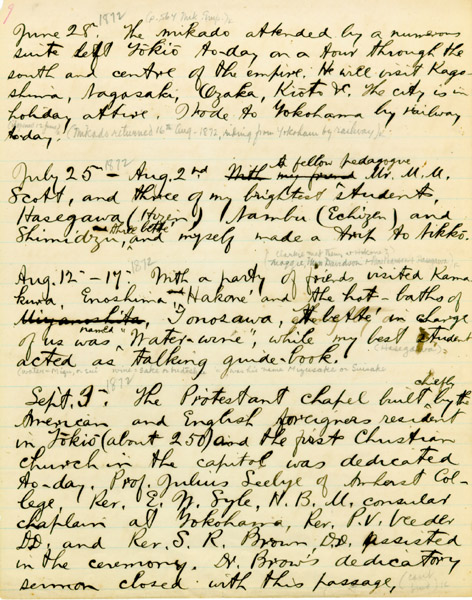 1872 (p. 564 Mik. Emp.)
June 28. The mikado attended by a numerous
suite left Tokio to-day on a tour through the
south and centre of the empire. He will visit Kago
shima, Nagasaki, Ozaka, Kioto &c. The city is in
holiday attire. Rode to Yokohama by railway
to-day. (Mikado returned 16th Aug- 1872, riding from Yokohama by railway)
1872
July 25 - Aug. 2nd With my friend A fellow pedagogue Mr. M.M.
Scott, and three of my brightest students,
Hasegawa (Hizen) Nambu (Echizen) and
Shimidzu, and three bettô and myself made a trip to Nikkô.
1872
Aug. 12-17. With a party of friends visited Kama
kura, Enoshima Hakone and the hot-baths of
Miyanoshita, Tonosawa, A bettô in charge
of us was named "Water-wine", while my best student
(Hasegawa)
acted as talking guide-book.
1872
Sept. 3. The Protestant chapel built chiefly by the
American and English foreigners resident
in Tokio (about 250) and the first Christian
church in the capitol was dedicated
to-day. Prof. Julius Seelye of Amherst Col-
lege, Rev. E. W. Syle, H.B.M. consular
chaplain at Yokohama, Rev. P.V. Veeder
D.D. and Rev. S. R. Brown D.D. assisted
in the ceremony. Dr. Brown's dedicatory
sermon closed with this passage,